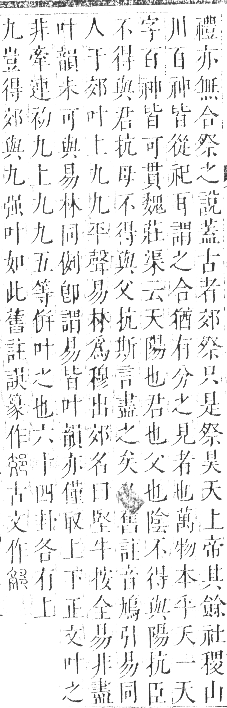 禮亦無合祭之說蓋古者郊祭只是祭昊天上帝其餘社稷山
川百神皆從祀耳謂之合猶有分之見者也萬物本乎天一天
字百神皆可貫魏莊渠云天陽也君也父也陰不得與陽抗臣
不得與君抗母不得與父抗斯言盡之矣 舊註音鳩引易同
人于郊叶上九九平聲易林為穆出郊名曰竪牛按全易非盡
叶韻未可與易林同例卽謂易皆叶韻亦僅取上下正文叶之
非牽連初九上九九五等倂叶之也六十四卦各有上
九豈得郊與九强叶如此舊註誤篆作 古文作